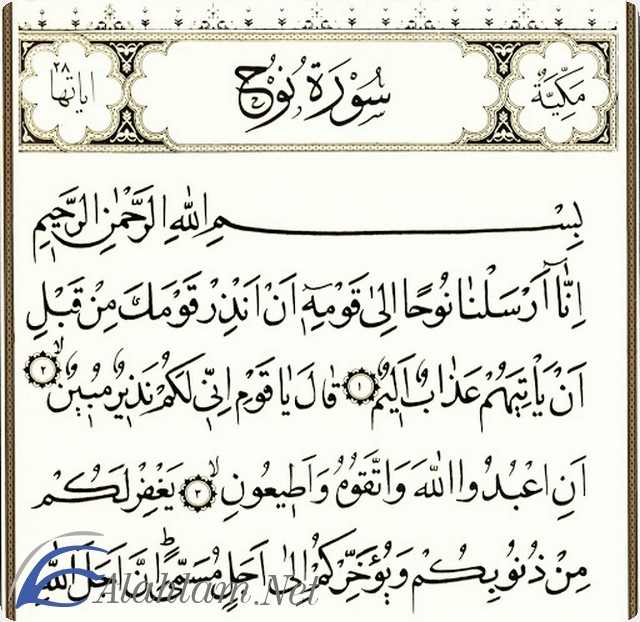 مَكِّيَّةٌ سُورَةُ نُوحٍ اياتها ٢٨
بِسْمِ اللهِ الرَّحْمٰنِ الرَّحِيمِ
اِنَّٓا اَرْسَلْنَا نُوحًا اِلٰى قَوْمِهِٓ اَنْ اَنْذِرْ قَوْمَكَ مِنْ قَبْلِ
اَنْ يَأْتِيَهُمْ عَذَابٌ اَلِيمٌ ١ قَالَ يَا قَوْمِ اِنِّى لَكُمْ نَذِيرٌ مُبِينٌ ٢
اَنِ اعْبُدُوا اللّٰهَ وَاتَّقُوهُ وَاَطِيعُونِ ٣ يَغْفِرْ لَكُمْ
مِنْ ذُنُوبِكُمْ وَيُؤَخِّرْكُمْ اِلٰٓى اَجَلٍ مُسَمًّى ط اِنَّ اَجَلَ اللّٰهِ
Alahlam.Net